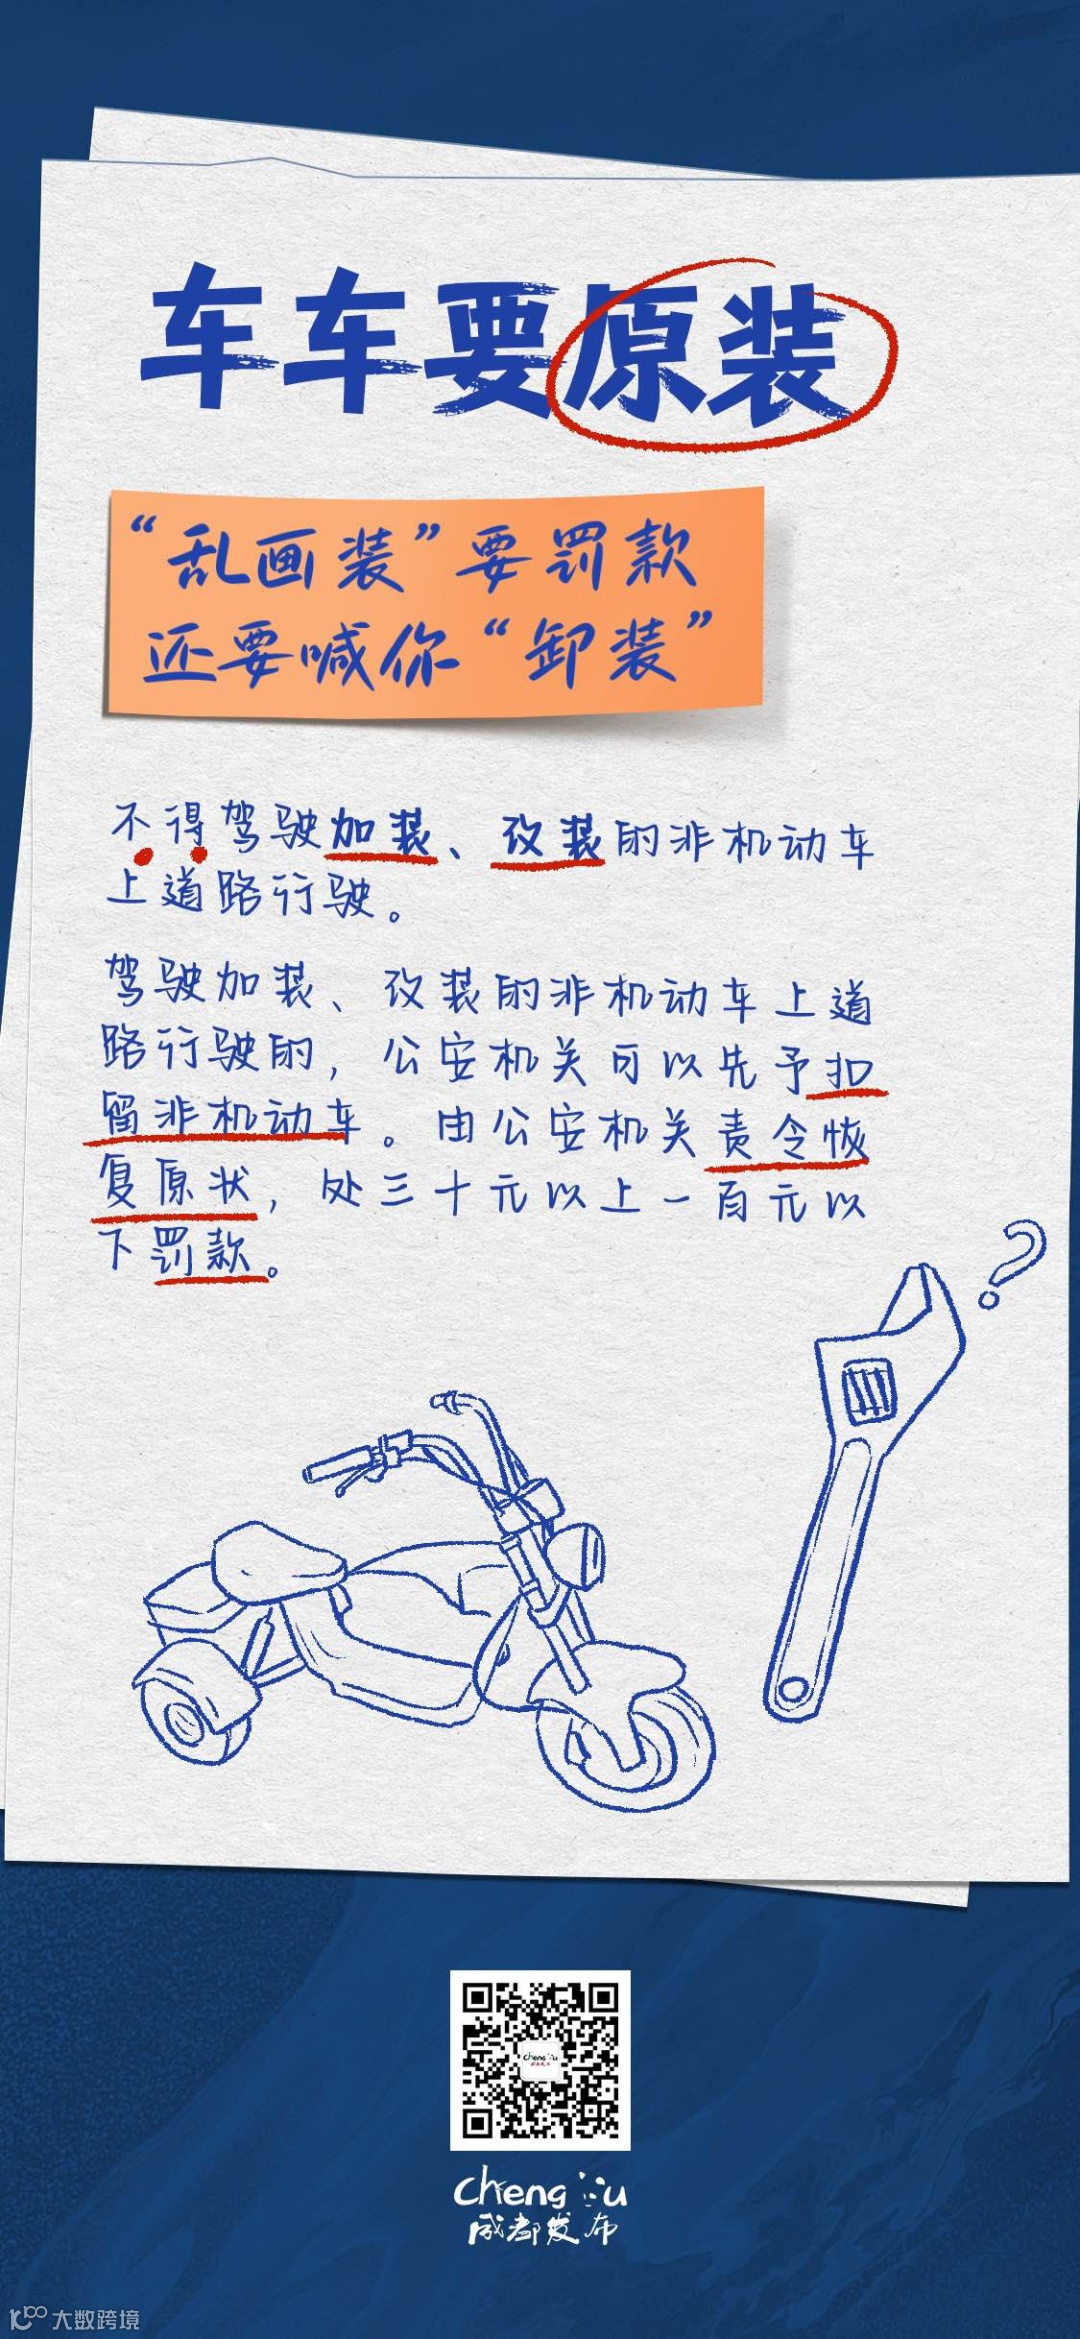 车车要原装
“乱画装”要罚款
还要喊你“卸装”
不得驾驶加装、改装的非机动车
上道路行驶。
驾驶加装、改装的非机动车上道
路行驶的,公安机关可以先予扣
留非机动车。由公安机关责令恢
复原状,处三十元以上一百元以
下罚款。
?
Chengdu
成都发布
大数跨境